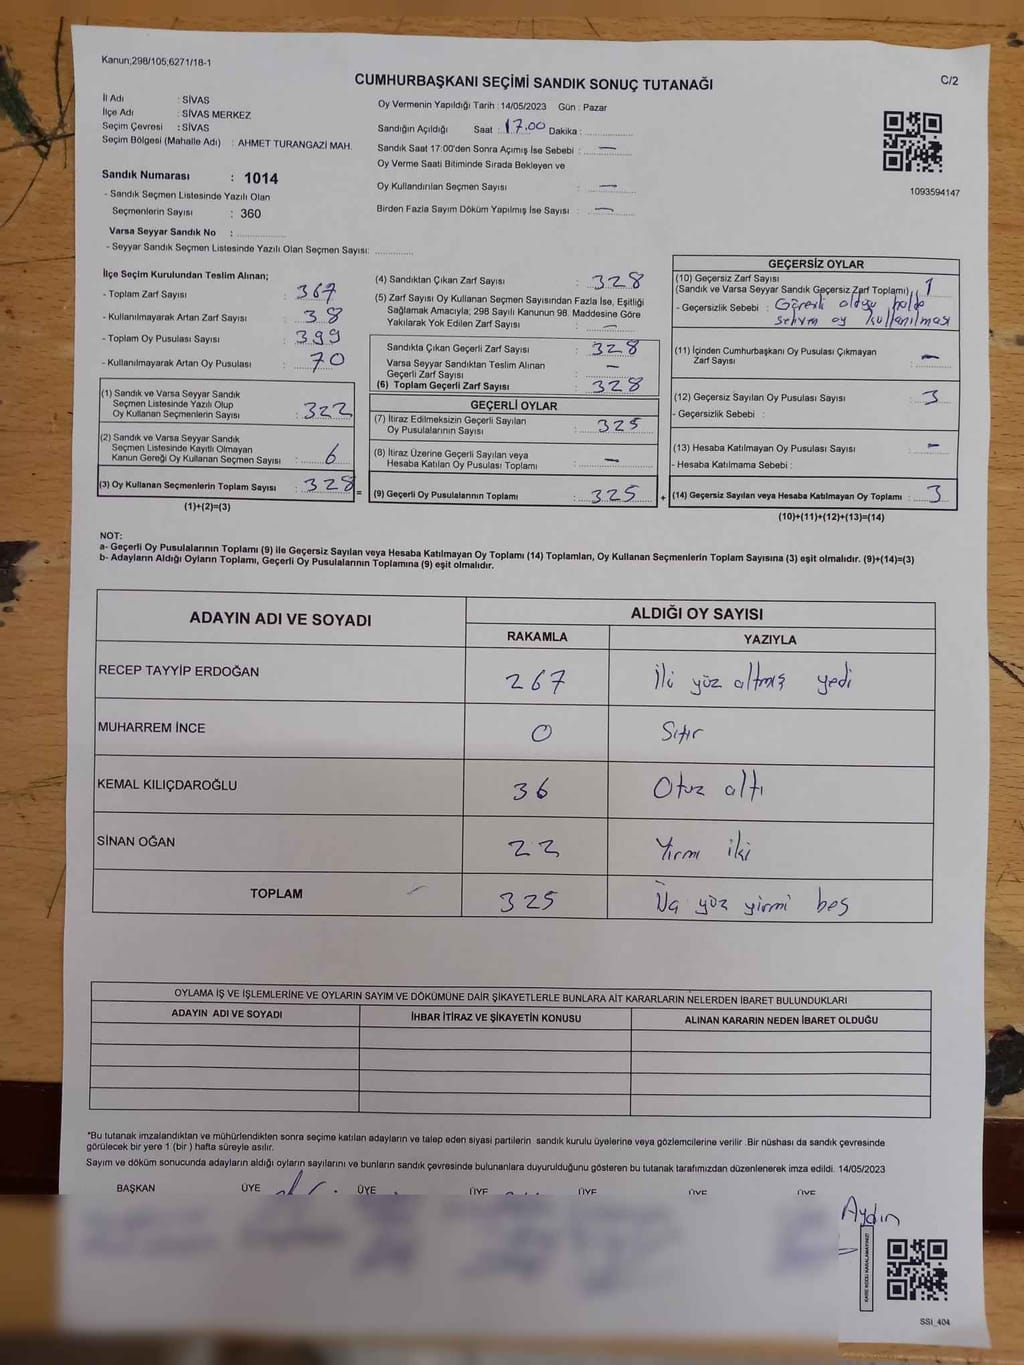 Kanun;298/105;6271/18-1
C/2
CUMHURBAŞKANI SEÇİMİ SANDIK SONUÇ TUTANAĞI
İl Adı : SİVAS
İlçe Adı : SİVAS MERKEZ
Seçim Çevresi : SİVAS
Seçim Bölgesi (Mahalle Adı) : AHMET TURANGAZİ MAH.
Sandık Numarası : 1014
- Sandık Seçmen Listesinde Yazılı Olan
Seçmenlerin Sayısı : 360
Varsa Seyyar Sandık No :
- Seyyar Sandık Seçmen Listesinde Yazılı Olan Seçmen Sayısı:
Oy Vermenin Yapıldığı Tarih : 14/05/2023 Gün : Pazar
Sandığın Açıldığı Saat : 17.00 Dakika :
Sandık Saat 17:00'den Sonra Açımış İse Sebebi : —
Oy Verme Saati Bitiminde Sırada Bekleyen ve
Oy Kullandırılan Seçmen Sayısı : —
Birden Fazla Sayım Döküm Yapılmış İse Sayısı : —
1093594147
İlçe Seçim Kurulundan Teslim Alınan;
- Toplam Zarf Sayısı : 367
- Kullanılmayarak Artan Zarf Sayısı : 38
- Toplam Oy Pusulası Sayısı : 399
- Kullanılmayarak Artan Oy Pusulası : 70
(1) Sandık ve Varsa Seyyar Sandık
Seçmen Listesinde Yazılı Olup
Oy Kullanan Seçmenlerin Sayısı : 322
(2) Sandık ve Varsa Seyyar Sandık
Seçmen Listesinde Kayıtlı Olmayan
Kanun Gereği Oy Kullanan Seçmen Sayısı : 6
(3) Oy Kullanan Seçmenlerin Toplam Sayısı : 328
(1)+(2)=(3)
=
(4) Sandıktan Çıkan Zarf Sayısı : 328
(5) Zarf Sayısı Oy Kullanan Seçmen Sayısından Fazla İse, Eşitliği
Sağlamak Amacıyla; 298 Sayılı Kanunun 98. Maddesine Göre
Yakılarak Yok Edilen Zarf Sayısı : —
Sandıkta Çıkan Geçerli Zarf Sayısı : 328
Varsa Seyyar Sandıktan Teslim Alınan
Geçerli Zarf Sayısı : —
(6) Toplam Geçerli Zarf Sayısı : 328
GEÇERLİ OYLAR
(7) İtiraz Edilmeksizin Geçerli Sayılan
Oy Pusulalarının Sayısı : 325
(8) İtiraz Üzerine Geçerli Sayılan veya
Hesaba Katılan Oy Pusulası Toplamı : —
(9) Geçerli Oy Pusulalarının Toplamı : 325
+
GEÇERSİZ OYLAR
(10) Geçersiz Zarf Sayısı
(Sandık ve Varsa Seyyar Sandık Geçersiz Zarf Toplamı) : 1
- Geçersizlik Sebebi : Görevli olduğu halde
sehven oy kullanılması
(11) İçinden Cumhurbaşkanı Oy Pusulası Çıkmayan
Zarf Sayısı : —
(12) Geçersiz Sayılan Oy Pusulası Sayısı : 3
- Geçersizlik Sebebi :
(13) Hesaba Katılmayan Oy Pusulası Sayısı : —
- Hesaba Katılmama Sebebi :
(14) Geçersiz Sayılan veya Hesaba Katılmayan Oy Toplamı : 3
(10)+(11)+(12)+(13)=(14)
NOT:
a- Geçerli Oy Pusulalarının Toplamı (9) ile Geçersiz Sayılan veya Hesaba Katılmayan Oy Toplamı (14) Toplamları, Oy Kullanan Seçmenlerin Toplam Sayısına (3) eşit olmalıdır. (9)+(14)=(3)
b- Adayların Aldığı Oyların Toplamı, Geçerli Oy Pusulalarının Toplamına (9) eşit olmalıdır.
ADAYIN ADI VE SOYADI ALDIĞI OY SAYISI
RAKAMLA YAZIYLA
RECEP TAYYİP ERDOĞAN 267 İki yüz altmış yedi
MUHARREM İNCE 0 Sıfır
KEMAL KILIÇDAROĞLU 36 Otuz altı
SİNAN OĞAN 22 Yirmi iki
TOPLAM 325 Üç yüz yirmi beş
OYLAMA İŞ VE İŞLEMLERİNE VE OYLARIN SAYIM VE DÖKÜMÜNE DAİR ŞİKAYETLERLE BUNLARA AİT KARARLARIN NELERDEN İBARET BULUNDUKLARI
ADAYIN ADI VE SOYADI İHBAR İTİRAZ VE ŞİKAYETİN KONUSU ALINAN KARARIN NEDEN İBARET OLDUĞU
*Bu tutanak imzalandıktan ve mühürlendikten sonra seçime katılan adayların ve talep eden siyasi partilerin sandık kurulu üyelerine veya gözlemcilerine verilir .Bir nüshası da sandık çevresinde
görülecek bir yere 1 (bir ) hafta süreyle asılır.
Sayım ve döküm sonucunda adayların aldığı oyların sayılarını ve bunların sandık çevresinde bulunanlara duyurulduğunu gösteren bu tutanak tarafımızdan düzenlenerek imza edildi. 14/05/2023
BAŞKAN ÜYE ÜYE ÜYE ÜYE ÜYE ÜYE
Aydın
KARE KODU KARALAMAYINIZ!
SSI_404